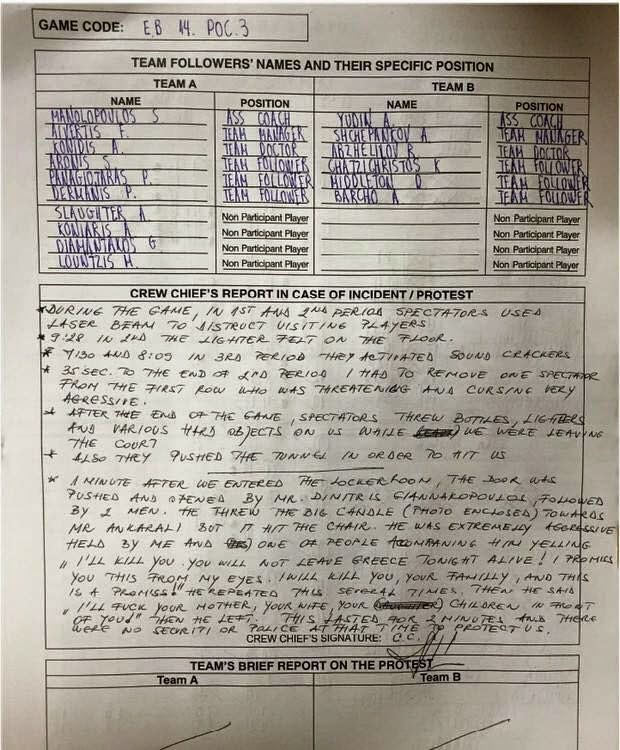 GAME CODE: EB 14. POC.3
TEAM FOLLOWERS' NAMES AND THEIR SPECIFIC POSITION
TEAM A TEAM B
NAME POSITION NAME POSITION
MANOLOPOULOS S ASS COACH YUDIN A. ASS COACH
ALVERTIS F. TEAM MANAGER SHCHEPANKOV A. TEAM MANAGER
KONIDIS A. TEAM DOCTOR ABZHELILOV R TEAM DOCTOR
ARONIS S. TEAM FOLLOWER CHATZICHRISTOS K TEAM FOLLOWER
PANAGIOTARAS P. TEAM FOLLOWER MIDDLETON D TEAM FOLLOWER
DERMANIS P. TEAM FOLLOWER BARCHO A TEAM FOLLOWER
SLAUGHTER A Non Participant Player Non Participant Player
KONIARIS A Non Participant Player Non Participant Player
DIAMANTAKOS G. Non Participant Player Non Participant Player
LOUNTZIS M. Non Participant Player Non Participant Player
CREW CHIEF'S REPORT IN CASE OF INCIDENT / PROTEST
* DURING THE GAME, IN 1ST AND 2ND PERIOD SPECTATORS USED
LASER BEAM TO DISTRUCT VISITING PLAYERS
* 9:28 IN 2ND THE LIGHTER FELT ON THE FLOOR.
* 7:30 AND 8:09 IN 3RD PERIOD THEY ACTIVATED SOUND CRACKERS
* 35 SEC. TO THE END OF 2ND PERIOD I HAD TO REMOVE ONE SPECTATOR
FROM THE FIRST ROW WHO WAS THREATENING AND CURSING VERY
AGRESSIVE.
* AFTER THE END OF THE GAME, SPECTATORS THREW BOTTLES, LIGHTERS
AND VARIOUS HARD OBJECTS ON US WHILE WE WERE LEAVING
THE COURT
* ALSO THEY PUSHED THE TUNNEL IN ORDER TO HIT US
* 1 MINUTE AFTER WE ENTERED THE LOCKERROOM, THE DOOR WAS
PUSHED AND OPENED BY MR. DIMITRIS GIANNAKOPOULOS, FOLLOWED
BY 2 MEN. HE THREW THE BIG CANDLE (PHOTO ENCLOSED) TOWARDS
MR ANKARALI BUT IT HIT THE CHAIR. HE WAS EXTREMELY AGGRESSIVE
HELD BY ME AND ONE OF PEOPLE ACOMPANING HIM YELLING
„I'LL KILL YOU. YOU WILL NOT LEAVE GREECE TONIGHT ALIVE! I PROMISS
YOU THIS FROM MY EYES. I WILL KILL YOU, YOUR FAMILLY, AND THIS
IS A PROMISS!" HE REPEATED THIS SEVERAL TIMES. THEN HE SAID
„I'LL FUCK YOUR MOTHER, YOUR WIFE, YOUR CHILDREN IN FRONT
OF YOU!" THEN HE LEFT. THIS LASTED FOR 2 MINUTES AND THERE
WERE NO SECURITI OR POLICE AT THAT TIME TO PROTECT US.
CREW CHIEF'S SIGNATURE: C.C.
TEAM'S BRIEF REPORT ON THE PROTEST
Team A Team B